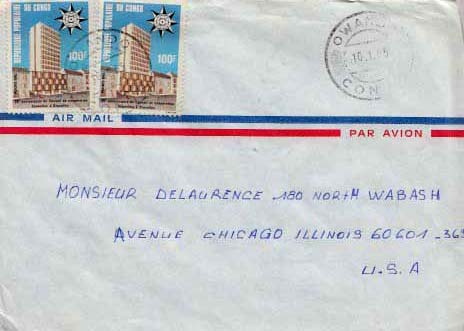 REPUBLIQUE POPULAIRE DU CONGO
100F
REPUBLIQUE POPULAIRE DU CONGO
100F
OWANDO
10.1
CON
AIR MAIL
PAR AVION
MONSIEUR DELAURENCE 180 NORTH WABASH
AVENUE CHICAGO ILLINOIS 60601-363
U.S.A